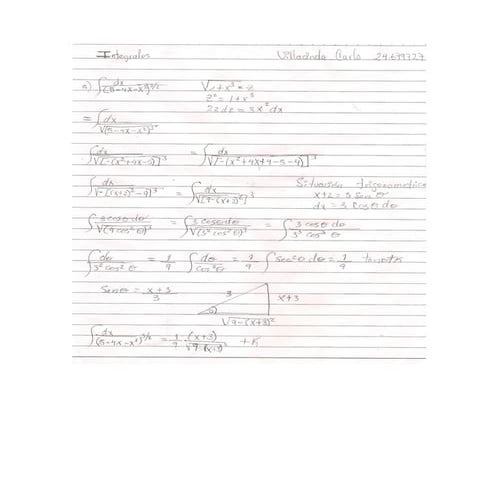 Integrales Villacinda Carla 24.679.727
a) ∫ dx/(5-4x-x²)^3/2 √1+x³ = z
z² = 1+x³
2z dz = 3x² dx
= ∫ dx/√(5-4x-x²)³
∫ dx/√[-(x²+4x-5)]³ = ∫ dx/√[-(x²+4x+4-5-4)]³
∫ dx/√[-[(x+2)²-9]³ = ∫ dx/√[9-(x+2)²]³ Situación trigonometrica
x+2 = 3 sen θ
dx = 3 cos θ dθ
∫ 3 cos θ dθ/√(9cos²θ)³ = ∫ 3 cos θ dθ/√(3²cos²θ)³ = ∫ 3 cos θ dθ/3³ cos³ θ
∫ dθ/3² cos² θ = 1/9 ∫ dθ/cos² θ = 1/9 ∫ sec² θ dθ = 1/9 tan θ+k
Sen θ = x+3/3 3 x+3
θ √9-(x+3)²
∫ dx/(5-4x-x²)^3/2 = 1/9 · (x+3)/√9-(x+3)² + K